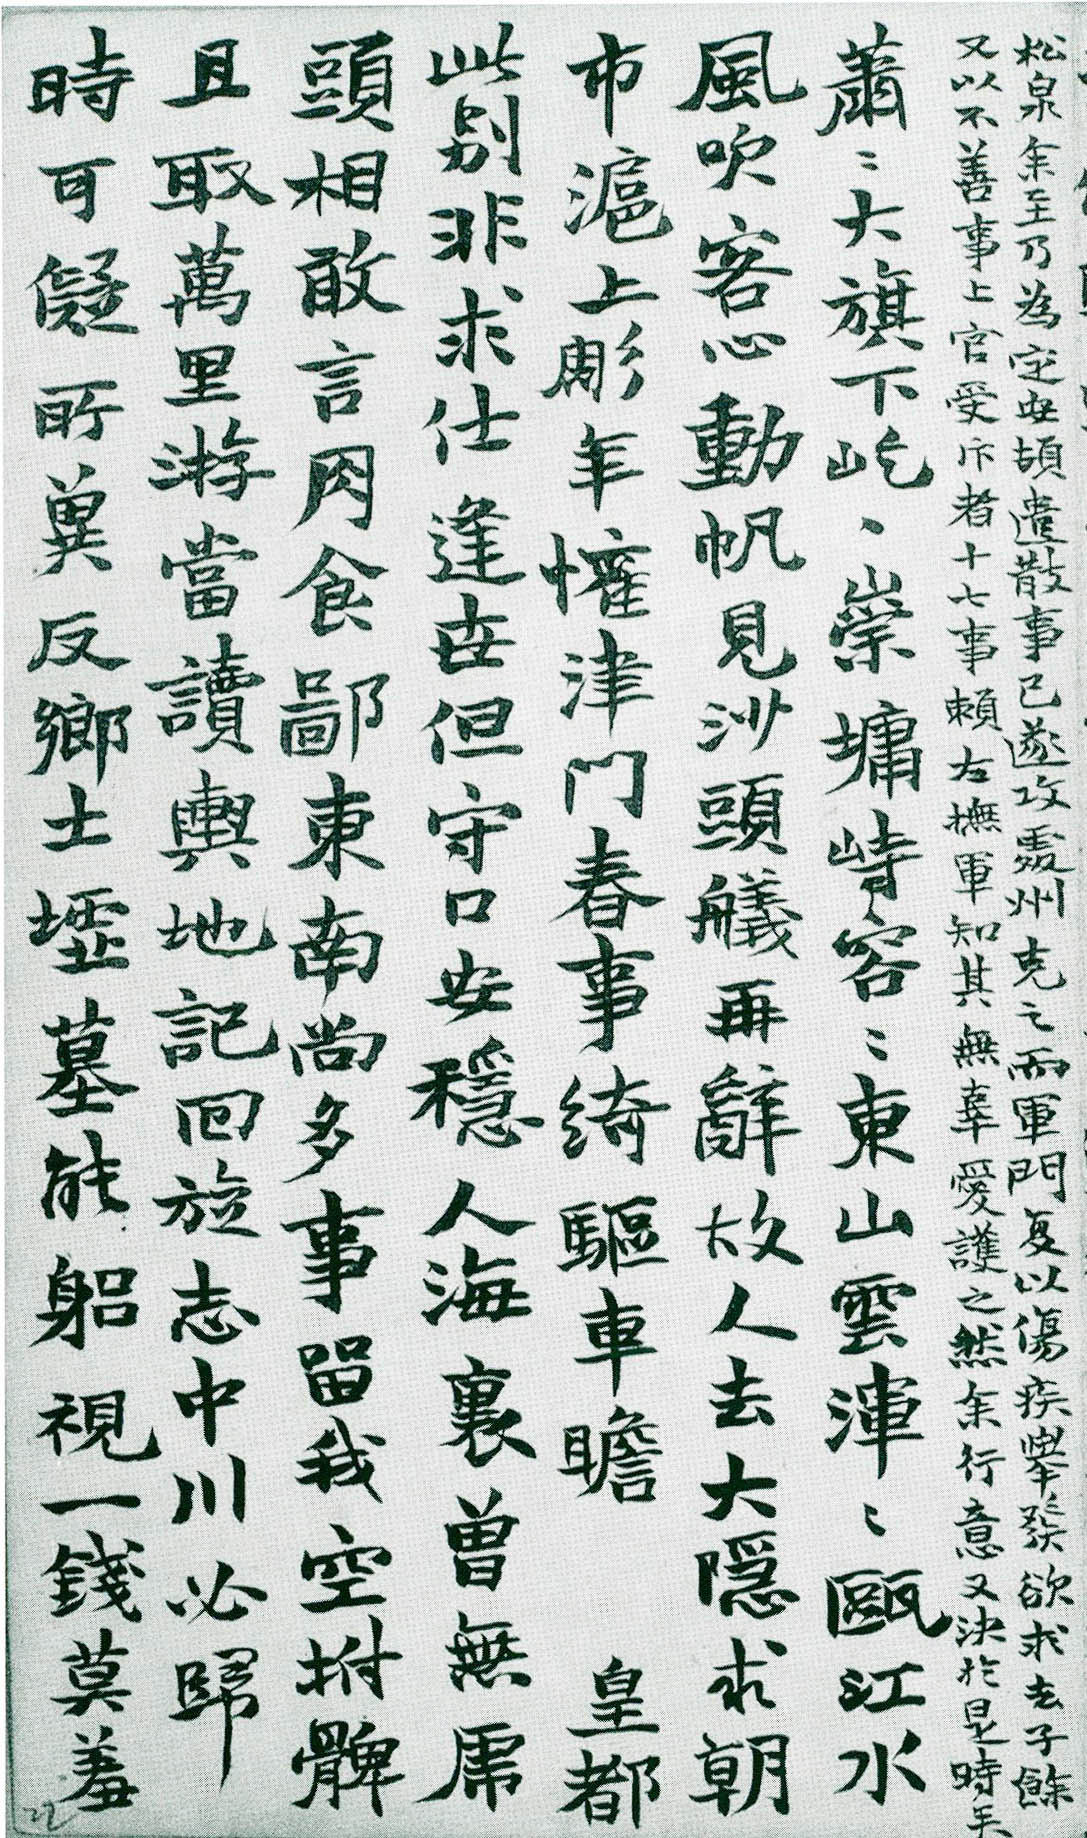 松泉余至乃為定安頓遣散事已遂攻處州克之而軍門复以傷疾舉發欲求去子餘
又以不善事上官受斥者十七事賴左撫軍知其無辜愛護之然余行意又決於是時矣
蕭〻大旗下屹〻崇墉峙容〻東山雲渾〻甌江水
風吹客心動帆見沙頭艤再辭故人去大隱求朝
市滬上彫年慛津門春事綺驅車瞻皇都
此别非求仕逢世但守口安穩人海裏曾無席
頭相敢言肉食鄙東南尚多事畱我空拊髀
且取萬里游當讀輿地記回旋志中川必歸
時可儗所冀反鄉土墟墓能躬視一錢莫羞
22